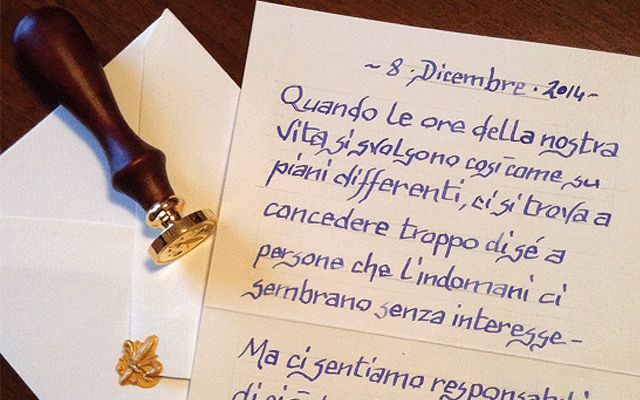 ~ 8 . Dicembre . 2014 ~
Quando le ore della nostra
vita, si svolgono così come su
piani differenti, ci si trova a
concedere troppo di sé a
persone che l'indomani ci
sembrano senza interesse -
Ma ci sentiamo responsabili